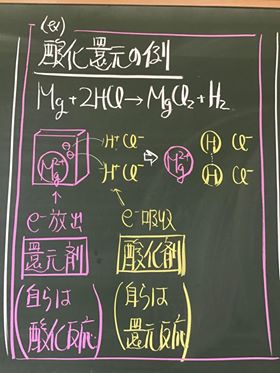 (ex)
酸化還元の例
Mg+2HCl→MgCl₂+H₂
Mg²⁺ e⁻ e⁻ H⁺ Cl⁻ ⇨ Mg²⁺ H Cl⁻
H⁺ Cl⁻ H Cl⁻
e⁻放出 e⁻吸収
還元剤 酸化剤
(自らは酸化反応) (自らは還元反応)